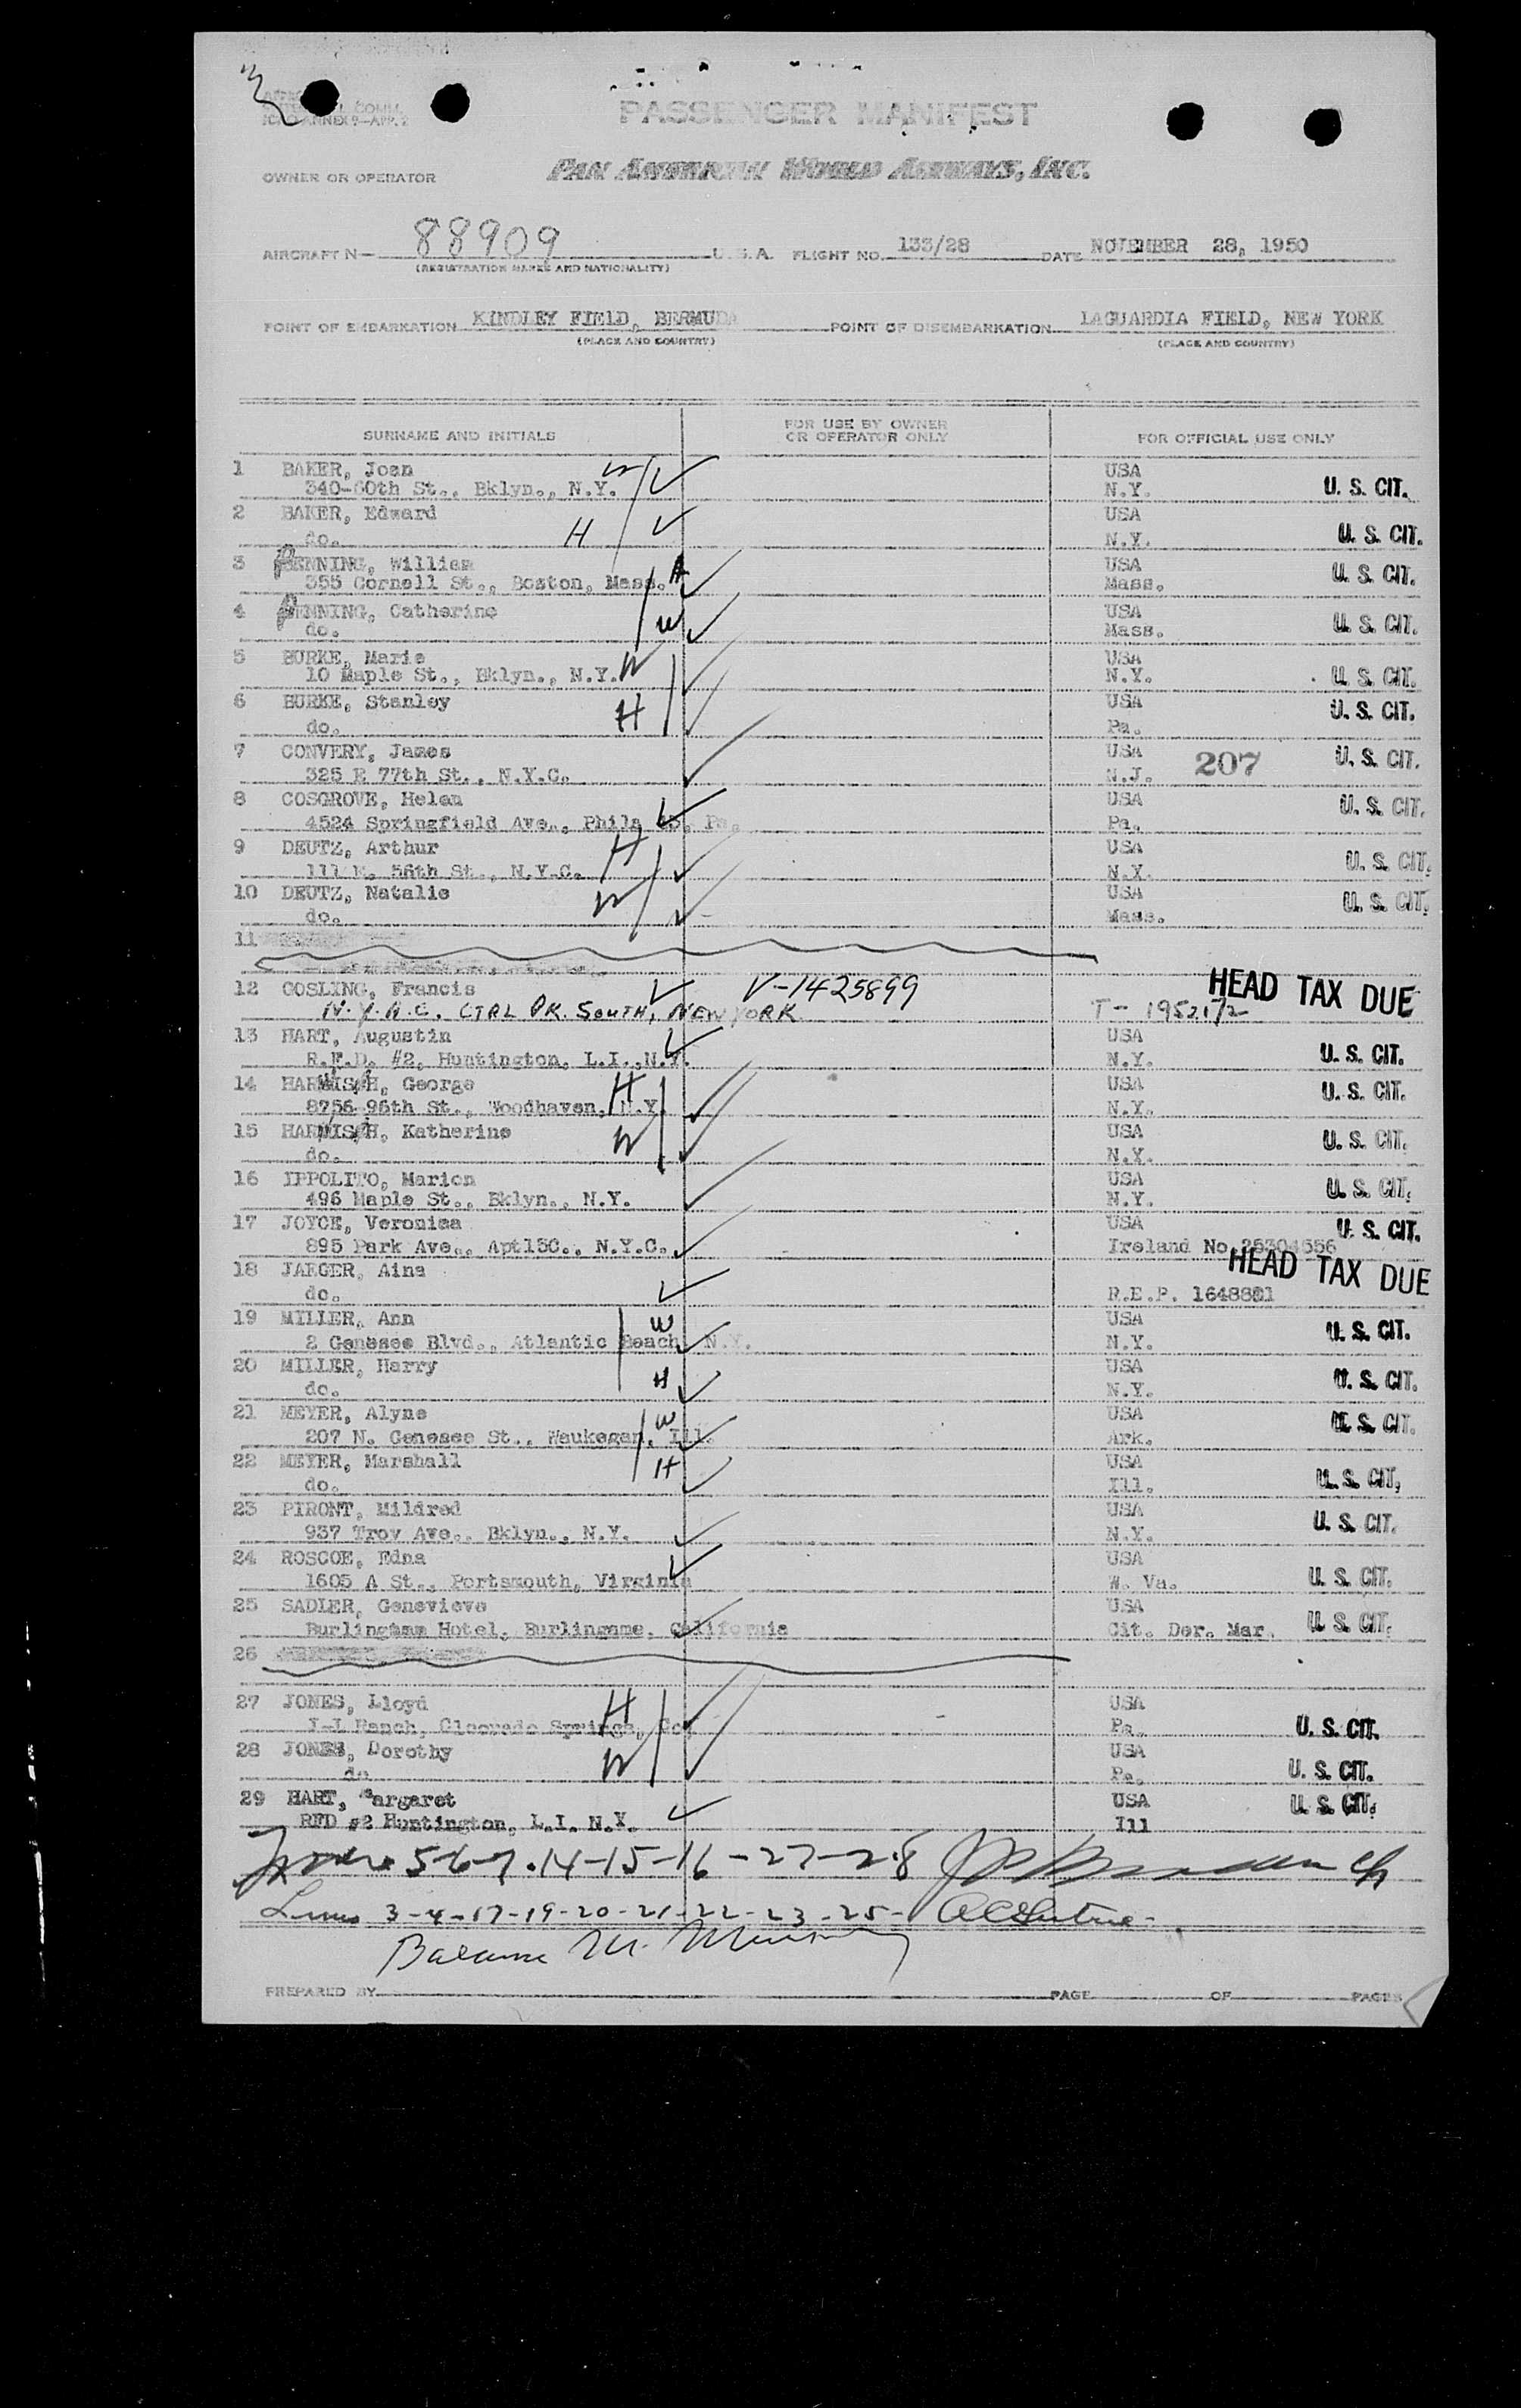 ICAO ANNEX 9—APP. 2
PASSENGER MANIFEST
OWNER OR OPERATOR PAN AMERICAN WORLD AIRWAYS, INC.
AIRCRAFT N— 88909 U.S.A. FLIGHT NO. 133/28 DATE NOVEMBER 28, 1950
(REGISTRATION MARKS AND NATIONALITY)
POINT OF EMBARKATION KINDLEY FIELD, BERMUDA POINT OF DISEMBARKATION LAGUARDIA FIELD, NEW YORK
(PLACE AND COUNTRY) (PLACE AND COUNTRY)
SURNAME AND INITIALS FOR USE BY OWNER OR OPERATOR ONLY FOR OFFICIAL USE ONLY
1 BAKER, Joan W USA
340-60th St., Bklyn., N.Y. N.Y. U. S. CIT.
2 BAKER, Edward USA
do. H N.Y. U. S. CIT.
3 PENNING, William USA
355 Cornell St., Boston, Mass. H Mass. U. S. CIT.
4 PENNING, Catherine USA
do. W Mass. U. S. CIT.
5 BURKE, Marie W USA
10 Maple St., Bklyn., N.Y. N.Y. U. S. CIT.
6 BURKE, Stanley H USA U. S. CIT.
do. Pa.
7 CONVERY, James USA 207 U. S. CIT.
325 E 77th St., N.Y.C. N.J.
8 COSGROVE, Helen USA U. S. CIT.
4524 Springfield Ave., Phila 43, Pa. Pa.
9 DEUTZ, Arthur H USA
111 E. 56th St., N.Y.C. N.Y. U. S. CIT.
10 DEUTZ, Natalie W USA U. S. CIT.
do. Mass.
11
12 GOSLING, Francis V-1425899 HEAD TAX DUE
N.Y.A.C. CTRL PK. SOUTH, NEW YORK T-
13 HART, Augustin USA
R.F.D. #2, Huntington, L.I., N.Y. N.Y. U. S. CIT.
14 George H USA U. S. CIT.
8756-96th St., Woodhaven, N.Y. N.Y.
15 Katherine W USA U. S. CIT.
do. N.Y.
16 IPPOLITO, Marion USA
496 Maple St., Bklyn., N.Y. N.Y. U. S. CIT.
17 JOYCE, Veronica USA U. S. CIT.
895 Park Ave., Apt15C., N.Y.C. Ireland No.
18 JAEGER, Aina HEAD TAX DUE
do. R.E.P.
19 MILLER, Ann W USA
2 Genesee Blvd., Atlantic Beach, N.Y. N.Y. U. S. CIT.
20 MILLER, Harry USA
do. H N.Y. U. S. CIT.
21 MEYER, Alyne W USA U. S. CIT.
207 N. Genesee St., Waukegan, Ill. Ark.
22 MEYER, Marshall H USA
do. Ill. U. S. CIT.
23 PIRONT, Mildred USA
937 Troy Ave., Bklyn., N.Y. N.Y. U. S. CIT.
24 ROSCOE, Edna USA
1605 A St., Portsmouth, Virginia W. Va. U. S. CIT.
25 SADLER, Genevieve USA
Hotel, Burlingame, California Cit. Der. Mar. U. S. CIT.
26
27 JONES, Lloyd H USA
Ranch, Springs, Co. Pa. U. S. CIT.
28 JONES, Dorothy W USA
do Pa. U. S. CIT.
29 HART, Margaret USA U. S. CIT.
RFD #2 Huntington, L.I. N.Y. Ill
5-6-7-14-15-16-27-28
Lines 3-4-17-19-20-21-22-23-25-
Balance
PREPARED BY PAGE OF PAGES